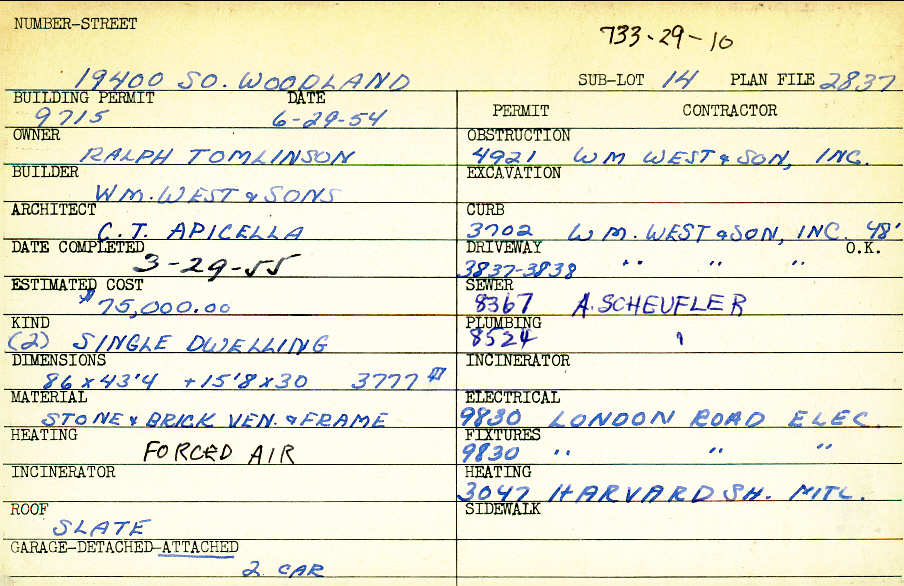 NUMBER-STREET
733-29-10
19400 SO. WOODLAND SUB-LOT 14 PLAN FILE 2837
BUILDING PERMIT DATE
9715 6-29-54
PERMIT CONTRACTOR
OWNER
RALPH TOMLINSON
OBSTRUCTION
4921 WM WEST & SON, INC.
BUILDER
WM. WEST & SONS
EXCAVATION
ARCHITECT
C. T. APICELLA
CURB
3702 WM. WEST & SON, INC. 48'
DATE COMPLETED
3-29-55
DRIVEWAY O.K.
3837-3838 " " "
ESTIMATED COST
$75,000.00
SEWER
8367 A. SCHEUFLER
KIND
(2) SINGLE DWELLING
PLUMBING
8524 "
DIMENSIONS
86 x 43'4 + 15'8 x 30 3777 #
INCINERATOR
MATERIAL
STONE & BRICK VEN. & FRAME
ELECTRICAL
9830 LONDON ROAD ELEC.
HEATING
FORCED AIR
FIXTURES
9830 " " "
INCINERATOR
HEATING
3047 HARVARD SH. MTL.
ROOF
SLATE
SIDEWALK
GARAGE-DETACHED-ATTACHED
2 CAR